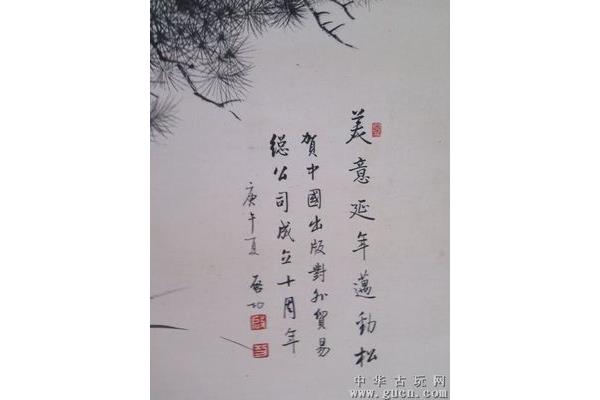 美意延年邁勁松
賀中國出版對外貿易
總公司成立十周年
庚午夏 启功
中华古玩网
www.gucn.com